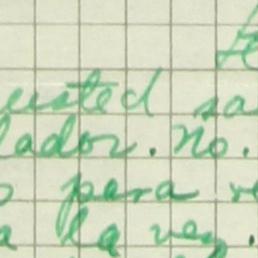 usted sa
lador. No.
s para re
a la vez.